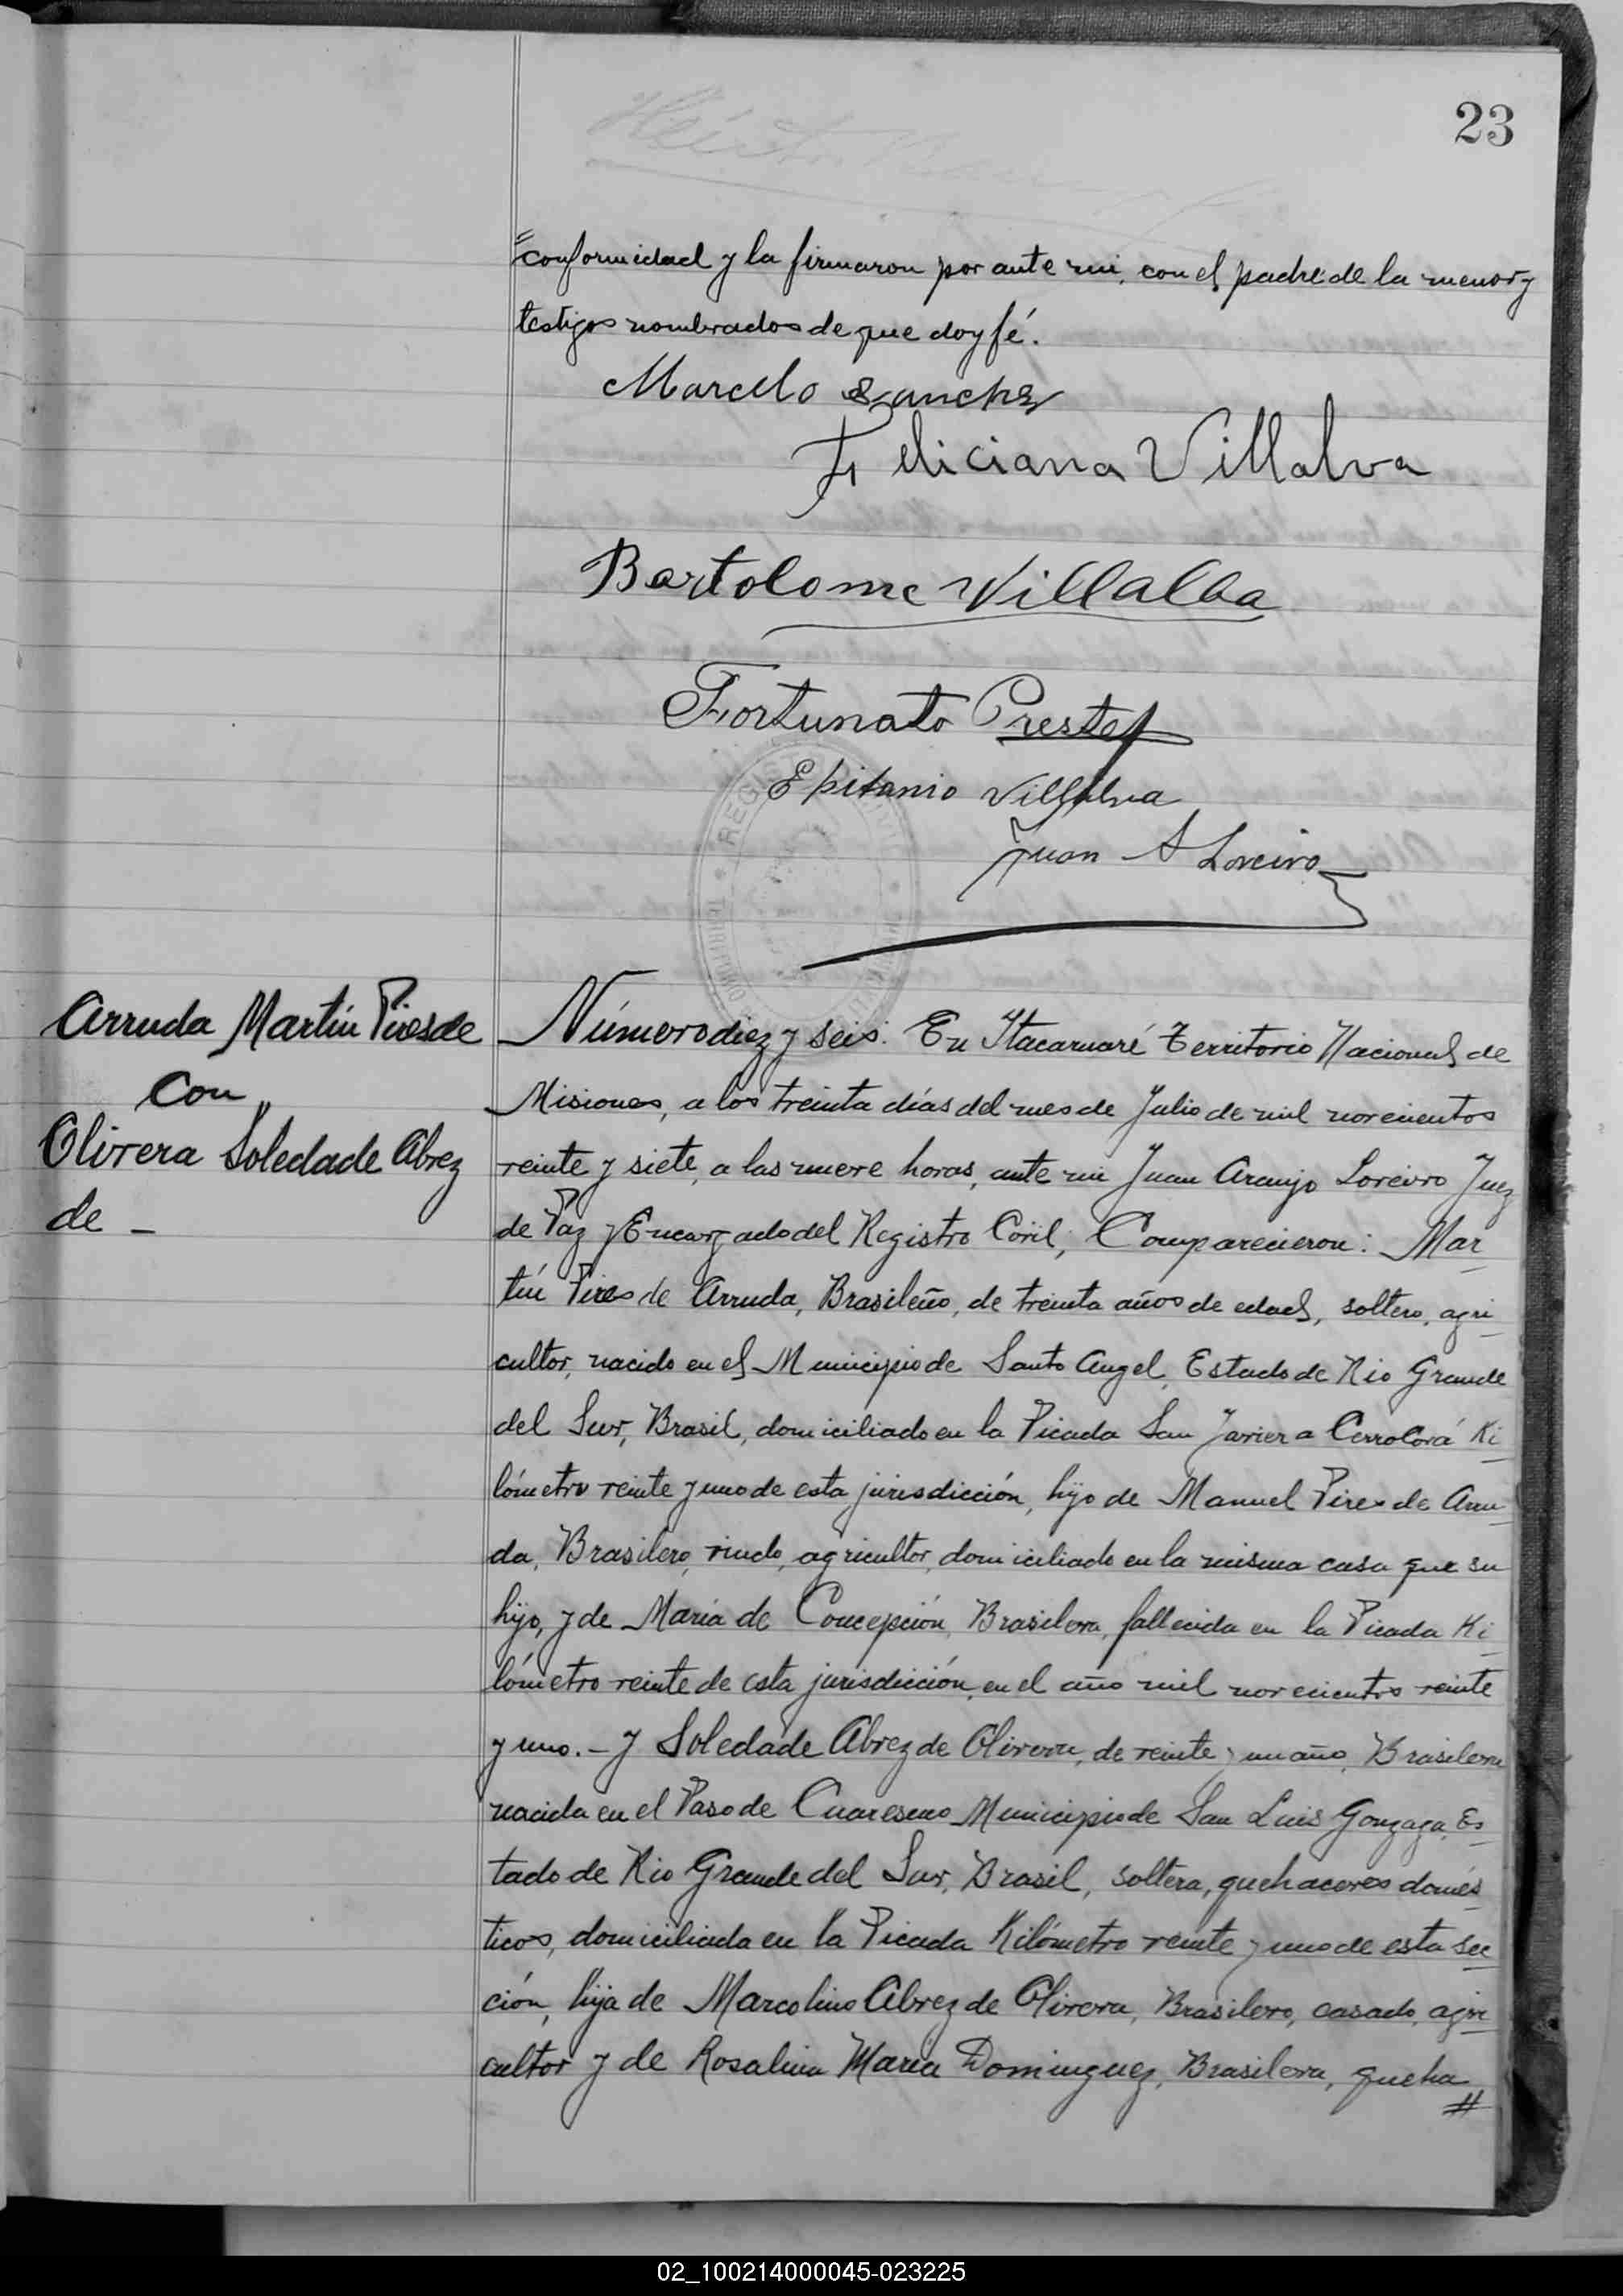 23
=conformidad y la firmaron por ante mi, con el padre de la menor y
testigos nombrados de que doy fé.
Marcelo Sanchez
Feliciana Villalva
Bartolome Villalba
Fortunato Prestes
Epifanio Villalva
Juan A Loreiro
REGIS
Arruda Martín Pires de
Con
Olivera Soledade Abrez
de –
Número diez y seis. En Itacaruaré Territorio Nacional de
Misiones, a los treinta días del mes de Julio de mil novecientos
veinte y siete, a las nueve horas, ante mi Juan Araujo Loreiro Juez
de Paz y Encargado del Registro Civil, Comparecieron: Mar
tín Pires de Arruda, Brasileño, de treinta años de edad, soltero, agri
cultor, nacido en el Municipio de Santo Angel, Estado de Rio Grande
del Sur, Brasil, domiciliado en la Picada San Javier a Cerro Corá Ki
lómetro veinte y uno de esta jurisdicción, hijo de Manuel Pires de Arru
da, Brasilero, viudo, agricultor, domiciliado en la misma casa que su
hijo, y de María de Concepción, Brasilera, fallecida en la Picada Ki
lómetro veinte de esta jurisdicción, en el año mil novecientos veinte
y uno. – y Soledade Abrez de Olivera, de veinte y un año, Brasilera
nacida en el Paso de Cuaresmo Municipio de San Luis Gonzaga, Es
tado de Rio Grande del Sur, Brasil, soltera, quehaceres domés
ticos, domiciliada en la Picada Kilómetro veinte y uno de esta sec
ción, hija de Marcolino Abrez de Olivera, Brasilero, casado, agri
cultor y de Rosalina María Dominguez, Brasilera, queha
=
02_100214000045-023225